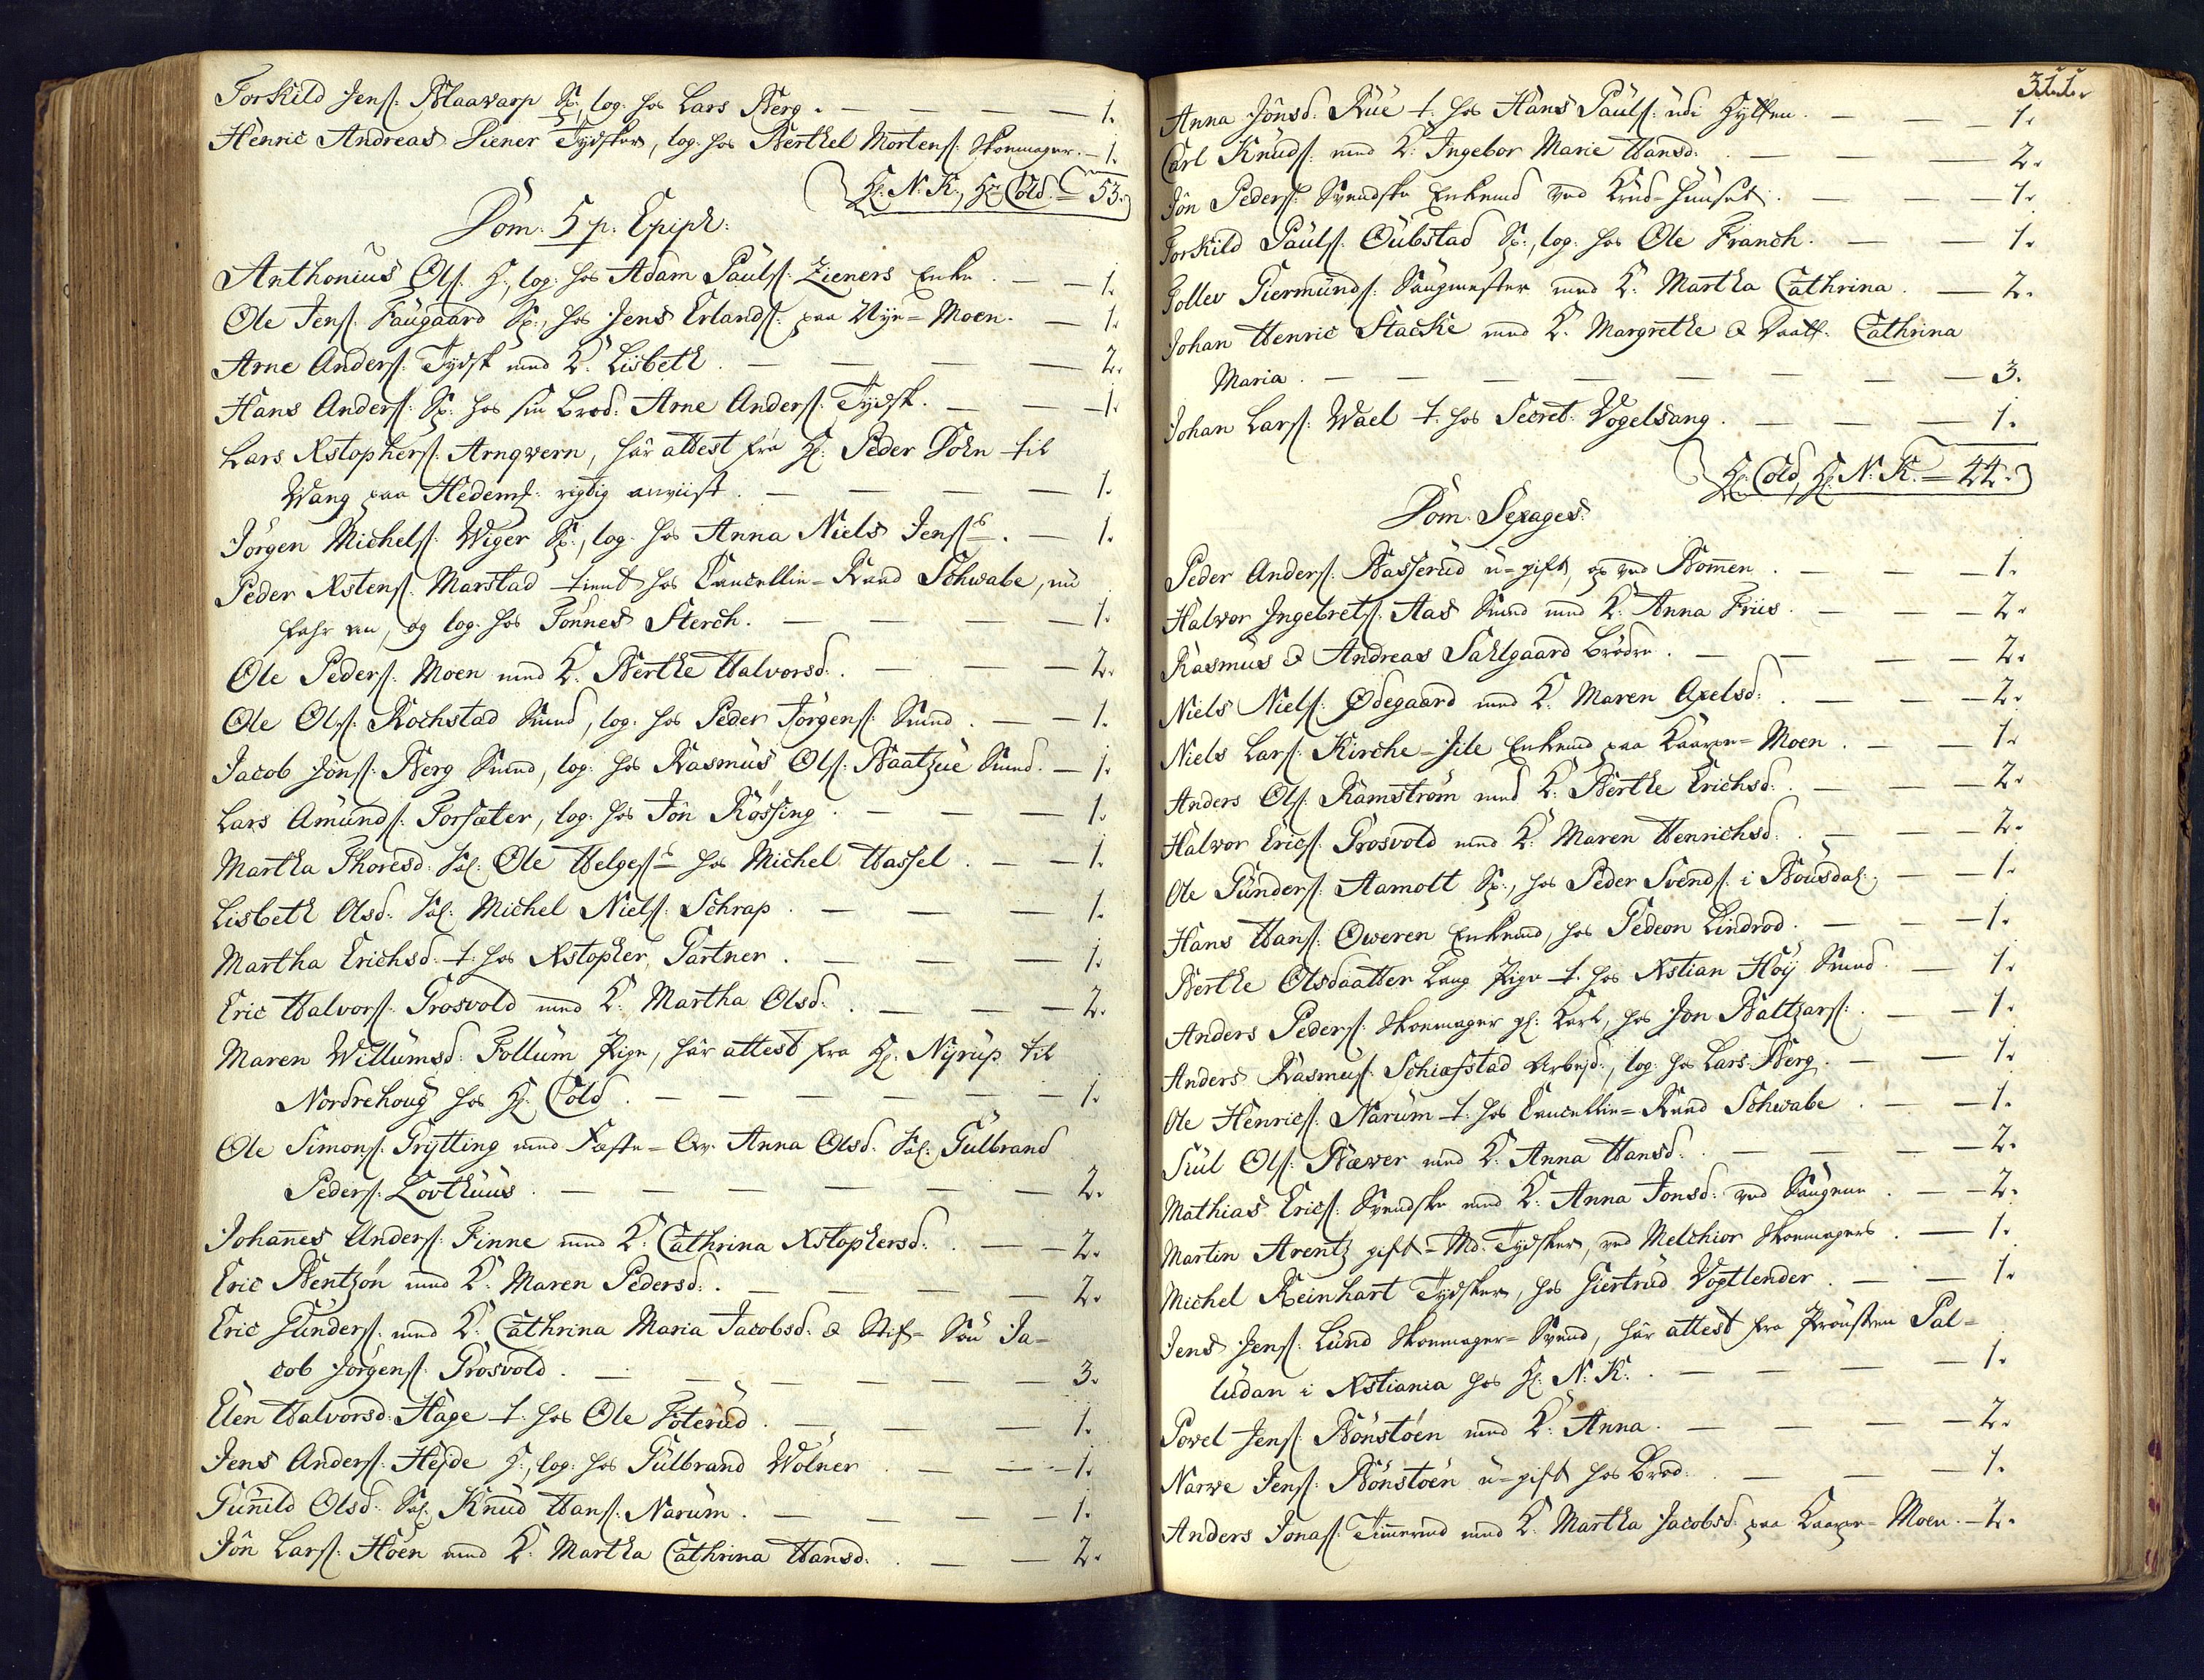 Torkild Jens: Blaawarp Sp:, log: hos Lars Berg. — — — — 1.
Henric Andreas Diener Tydsker, log: hos Berthel Mortens: Skoemager. — 1.
H: N. K., Hr Cold. = 53.
Dom: 5 p: Epiph:
Anthonius Ols: H:, log: hos Adam Pauls: Zieners Enke. — — 1.
Ole Jens: Faugaard Sp:, hos Jens Erlands: paa Nye=Moen. — 1.
Arne Anders: Tydsk med K: Lisbeth. — — — — 2.
Hans Anders: Sp: hos sin Brod: Arne Anders: Tydsk. — — 1.
Lars Xstophers: Arnqvern, har attest fra H: Peder Dohn til
Wang paa Hedem: rigtig anviist. — — — — 1.
Jörgen Michels: Wiger Sp:, log: hos Anna Niels Jens:s. — 1.
Peder Xstens: Marstad tient hos Cancellie=Raad Schwabe, nu
fahr en, og log: hos Tönnes Sterch. — — — — 1.
Ole Peders: Moen med K: Berthe Halvorsd:. — — — 2.
Ole Ols: Rochstad Smed, log: hos Peder Jörgens: Smed. — — 1.
Jacob Jöns: Berg Smed, log: hos Rasmus Ols: Baatzue Smed. — 1.
Lars Amunds: Forsæter, log: hos Jon Kössing. — — — 1.
Martha Thoresd: Sal: Ole Helges:s hos Michel Hassel. — — 1.
Lisbeth Olsd: Sal: Michel Niels: Schrap. — — — 1.
Martha Erichsd: t: hos Xstopher Gartner. — — — 1.
Eric Halvors: Grosvold med K: Martha Olsd:. — — — 2.
Maren Willumsd: Follum Pige, har attest fra H: Nyrup til
Nordrehoug hos H: Cold. — — — — — — 1.
Ole Simons: Grytting med Fæste=Qv: Anna Olsd: Sal: Gulbrand
Peders: Lovthuus. — — — — — — 2.
Johannes Anders: Finne med K: Cathrina Xstophersd:. — — 2.
Eric Bentzön med K: Maren Pedersd:. — — — — 2.
Eric Gunders: med K: Cathrina Maria Jacobsd: & Stif=Sön Ja=
cob Jörgens: Grosvold. — — — — — — 3.
Elen Halvorsd: Hage t: hos Ole Foterud. — — — 1.
Jens Anders: Hejde H:, log: hos Gulbrand Wölner. — — — 1.
Gunild Olsd: Sal: Knud Hans: Narum. — — — — 1.
Jön Lars: Höen med K: Martha Cathrina Hansd:. — — 2.
Anna Jönsd: Rue t: hos Hans Pauls: udi Hytten. — — — 1.
Carl Knuds: med K: Ingebor Marie Hansd:. — — — — 2.
Jön Peders: Svendske Enkemd ved Krud=Huuset. — — — 1.
Torkild Pauls: Oubstad Sp:, log: hos Ole Franch. — — 1.
Tollev Giermunds: Saugmester med K: Martha Cathrina. — 2.
Johan Henric Stacke med K: Margrethe & Daatt: Cathrina
Maria. — — — — — — — — 3.
Johan Lars: Wael t: hos Secret: Vogelsang. — — — 1.
H: Cold, H: N. K. = 44.
Dom: Sexages:
Peder Anders: Basserud u=gift, op ved Bommen. — — — 1.
Halvor Ingebrets: Aas Smed med K: Anna Friis. — — 2.
Rasmus & Andreas Sahlgaard Brödre. — — — — 2.
Niels Niels: Ødegaard med K: Maren Axelsd:. — — — 2.
Niels Lars: Kirche=Jile Enkemd paa Kaarpe=Moen. — — 1.
Anders Ols: Ramström med K: Berthe Erichsd:. — — — 2.
Halvor Erics: Grosvold med K: Maren Henrichsd:. — — 2.
Ole Gunders: Aamott Sp:, hos Peder Svends: i Bousdal. — — 1.
Hans Hans: Oweren Enkemd, hos Gedeon Lindrod. — — — 1.
Berthe Olsdaatter Lang Pige t: hos Xstian Höy Smed. — 1.
Anders Peders: Skoemager gl: Karl, hos Jon Baltzars:. — — 1.
Anders Rasmus: Schiefstad Arbejd:, log: hos Lars Berg. — — 1.
Ole Henrics: Narum t: hos Cancellie=Raad Schwabe. — — 1.
Siul Ols: Bæwer med K: Anna Hansd:. — — — — 2.
Mathias Erics: Svendske med K: Anna Jonsd: ved Saugene. — 2.
Martin Arentz gift=Md: Tydsker, ved Melchior Skoemagers. — 1.
Michel Reinhart Tydsker, hos Giertrud Vogtlender. — — 1.
Jens Jens: Lund Skoemager=Svend, har attest fra Provsten Pal=
ludan i Xstiania hos H: N. K:. — — — — 1.
Povel Jens: Bönstöen med K: Anna. — — — — 2.
Narve Jens: Bönstöen u=gift hos Brod:. — — — 1.
Anders Jonas: Timermd med K: Martha Jacobsd: paa Kaarpe=Moen. — 2.